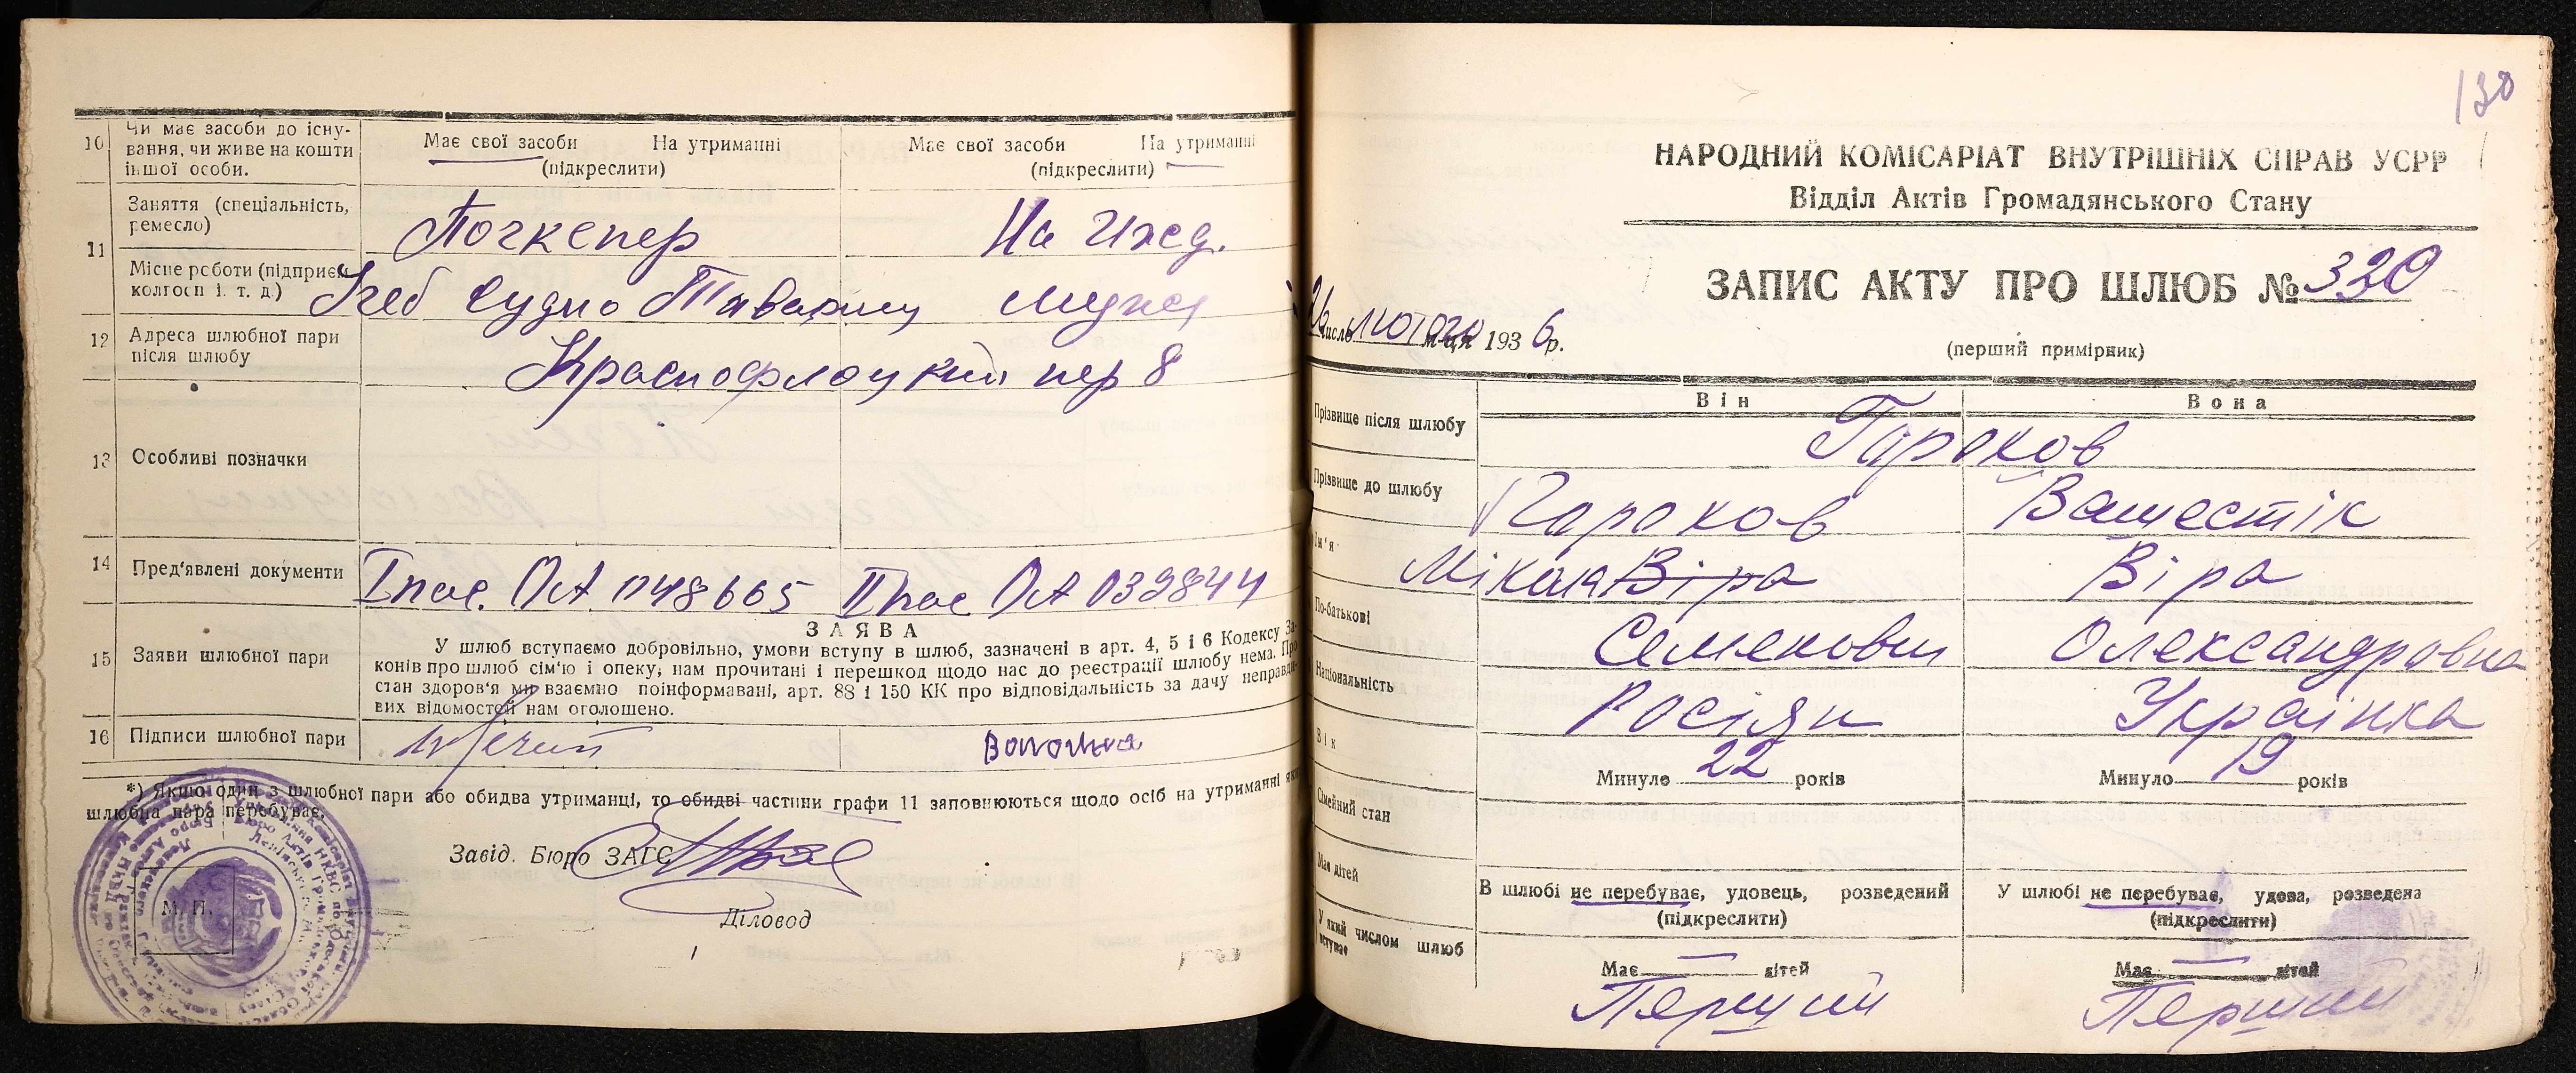 10 Чи має засоби до існу-
вання, чи живе на кошти
іншої особи.
Має свої засоби На утриманні
(підкреслити)
Має свої засоби На утриманні
(підкреслити)
11 Заняття (спеціальність,
ремесло)
На ижд.
Місце роботи (підприєм
колгосп і. т. д.)
Учеб Судно мужа
12 Адреса шлюбної пари
після шлюбу
Краснофлоцкий пер 8
13 Особливі позначки
14 Пред'явлені документи
I пас. ОА 048665 II пас ОА 039844
15 Заяви шлюбної пари
ЗАЯВА
У шлюб вступаємо добровільно, умови вступу в шлюб, зазначені в арт. 4, 5 і 6 Кодексу За-
конів про шлюб сім'ю і опеку, нам прочитані і перешкод щодо нас до реєстрації шлюбу нема. Про
стан здоров'я ми взаємно поінформавані, арт. 88 і 150 КК про відповідальність за дачу неправди-
вих відомостей нам оголошено.
16 Підписи шлюбної пари
*) Якщо один з шлюбної пари або обидва утриманці, то обидві частини графи 11 заповнюються щодо осіб на утриманні яких
шлюбна пара перебуває.
Завід. Бюро ЗАГС
М. П.
Діловод
130
НАРОДНИЙ КОМІСАРІАТ ВНУТРІШНІХ СПРАВ УСРР
Відділ Актів Громадянського Стану
ЗАПИС АКТУ ПРО ШЛЮБ № 320
26 числа лютого м-ця 1936р.
(перший примірник)
Він Вона
Прізвище після шлюбу
Гароков
Прізвище до шлюбу
Гароков Вашестік
Ім'я
Мікола Віра Віра
По-батькові
Семенович Олександровна
Національність
Росіян Українка
Вік
Минуло 22 років Минуло 19 років
Сімейний стан
В шлюбі не перебуває, удовець, розведений
(підкреслити)
У шлюбі не перебуває, удова, розведена
(підкреслити)
Має дітей
Має — дітей Має — дітей
У який числом шлюб
вступає
Перший Перший